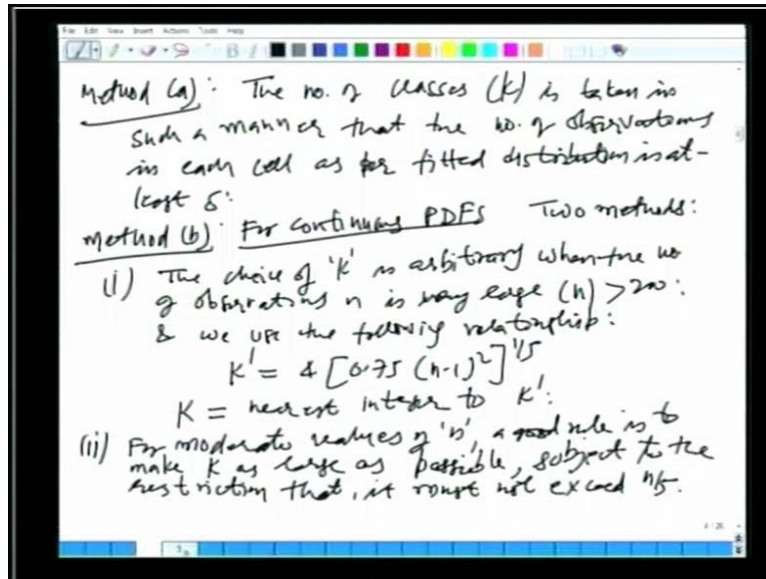 File Edit View Insert Actions Tools Help
Method (a): The no. of classes (K) is taken in
such a manner that the no. of observations
in each cell as per fitted distribution is at-
least 5:
Method (b): For continuous PDFs Two methods:
(i) The choice of 'K' is arbitrary when the no
of observations n is very large (n) > 200:
& we use the following relationship:
K' = 4 [0.75 (n-1)²]^1/5
K = nearest integer to K':
(ii) For moderate values of 'n', a good rule is to
make K as large as possible, subject to the
restriction that, it must not exceed n/5.